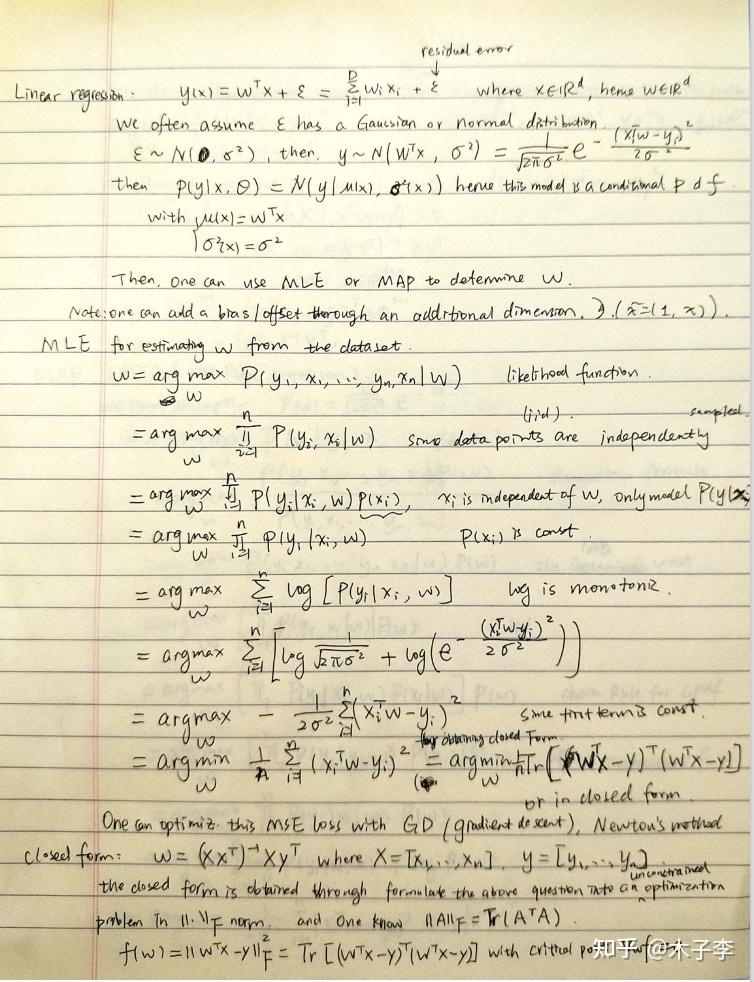 residual error
Linear regression: y(x) = wᵀx + ε = Σ_{i=1}^{D} wᵢxᵢ + ε where x∈ℝᵈ, hence w∈ℝᵈ
We often assume ε has a Gaussian or normal distribution.
ε ~ N(0, σ²), then, y ~ N(wᵀx, σ²) = 1/√(2πσ²) e^{-(xᵢᵀw-yᵢ)²/2σ²}
then P(y|x, θ) = N(y|μ(x), σ²(x)) hence this model is a conditional p d f
with { μ(x) = wᵀx
σ²(x) = σ²
Then, one can use MLE or MAP to determine w.
Note: one can add a bias/offset through an additional dimension, (x̃=(1, x)).
MLE for estimating w from the dataset.
w = arg max_w P(y₁, x₁, ..., yₙ, xₙ|w) likelihood function.
(iid). sampled
= arg max_w ∏_{i=1}^{n} P(yᵢ, xᵢ|w) since data points are independently
= arg max_w ∏_{i=1}^{n} P(yᵢ|xᵢ, w) P(xᵢ), xᵢ is independent of w, only model P(y|x
= arg max_w ∏_{i=1}^{n} P(yᵢ|xᵢ, w) P(xᵢ) is const.
= arg max_w Σ_{i=1}^{n} log [P(yᵢ|xᵢ, w)] log is monotonic.
= argmax_w Σ_{i=1}^{n} [log 1/√(2πσ²) + log(e^{-(xᵢᵀw-yᵢ)²/2σ²})]
= argmax_w - 1/2σ² Σ_{i=1}^{n} (xᵢᵀw - yᵢ)² Since first term is const.
for obtaining closed form
= argmin_w 1/n Σ_{i=1}^{n} (xᵢᵀw-yᵢ)² = argmin_w 1/n Tr[(wᵀX-y)ᵀ(wᵀX-y)]
or in closed form.
One can optimize this MSE loss with GD (gradient descent), Newton's method
closed form: w = (XXᵀ)⁻¹Xyᵀ where X=[x₁,..., xₙ], y=[y₁,..., yₙ]
unconstrained
the closed form is obtained through formulate the above question into an optimization
problem in ‖·‖_F norm. and one know ‖A‖_F = Tr(AᵀA).
f(w) = ‖wᵀX-y‖²_F = Tr[(wᵀX-y)ᵀ(wᵀX-y)] with critical
知乎 @木子李